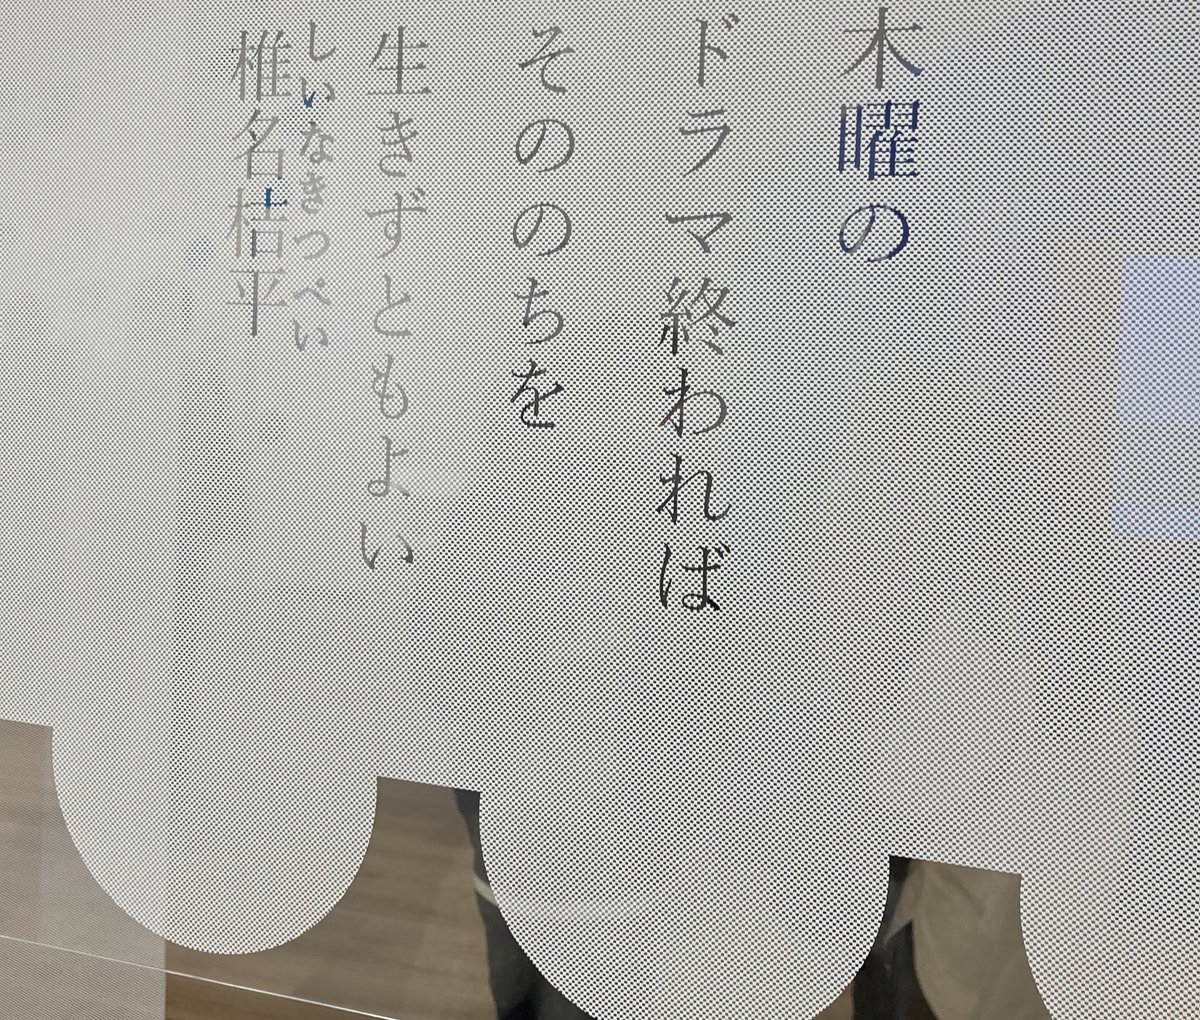 木曜の
ドラマ終われば
そののちを
生きずともよい
しいなきっぺい
椎名桔平